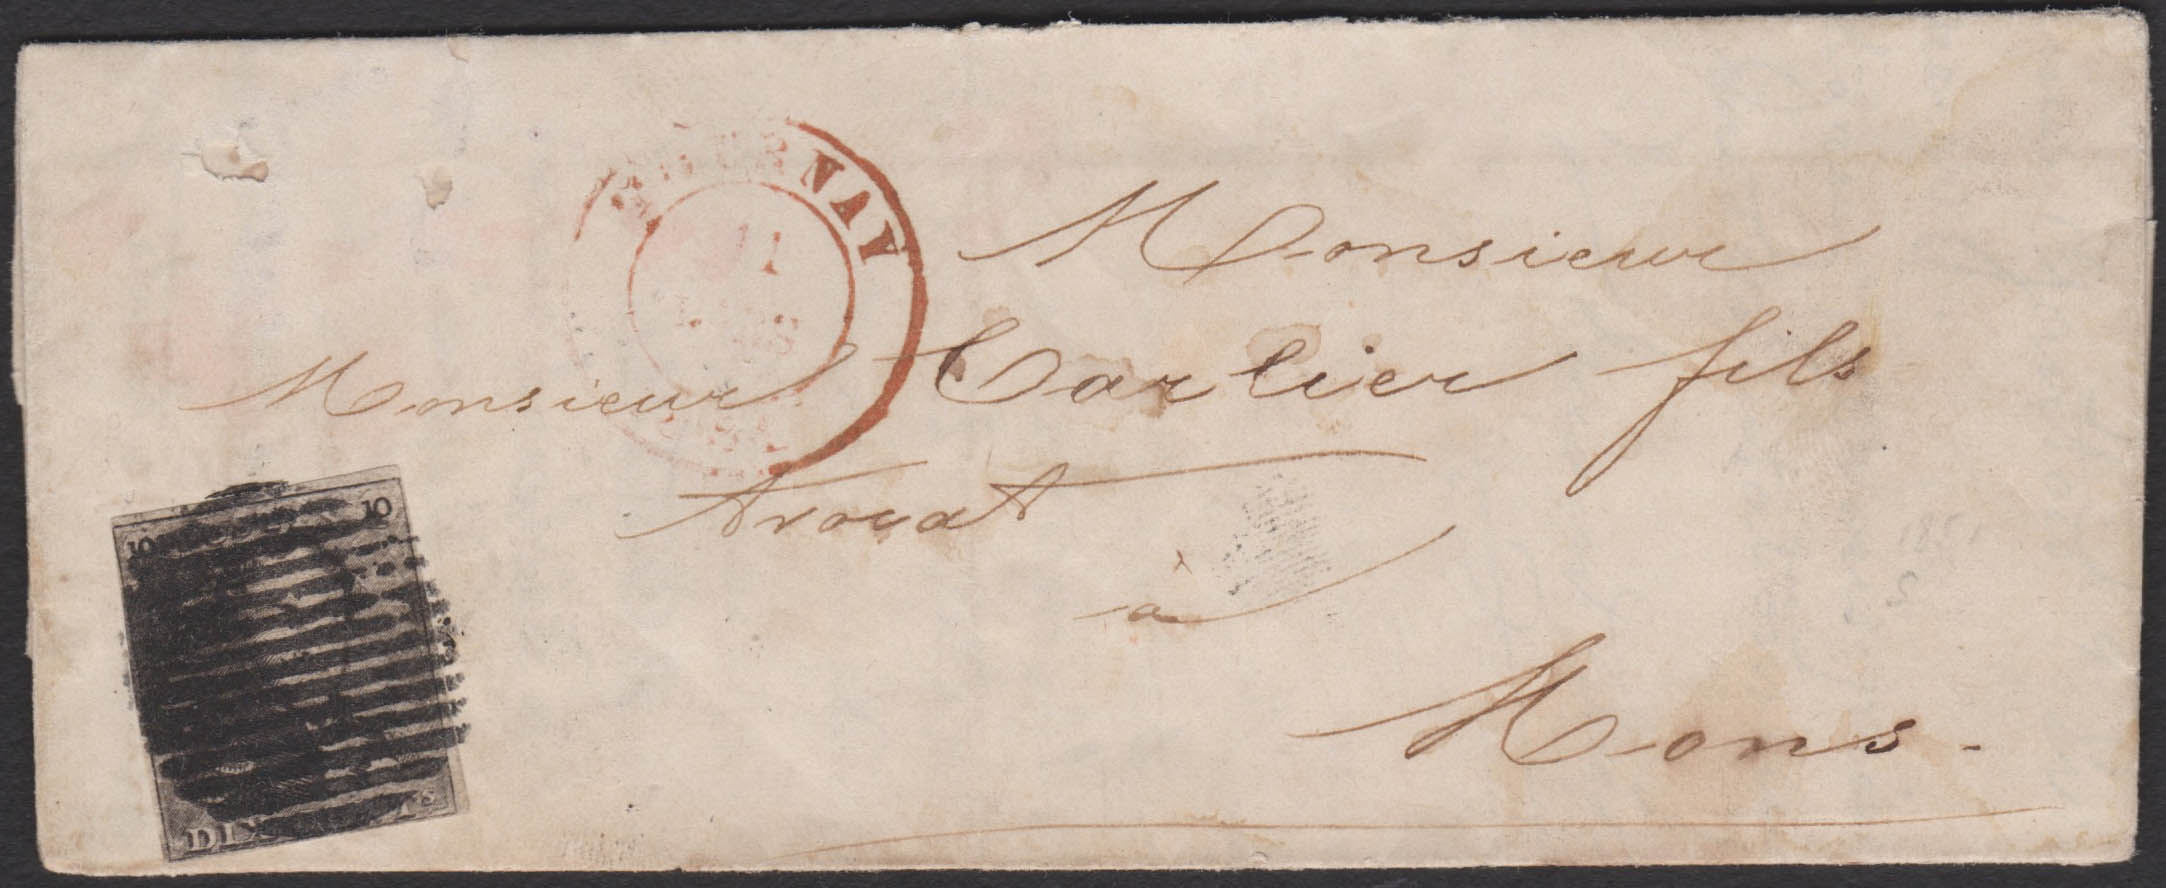 NAY
11
Monsieur
Monsieur Carlier fils
Avocat
à
Mons.
10 10
DIX